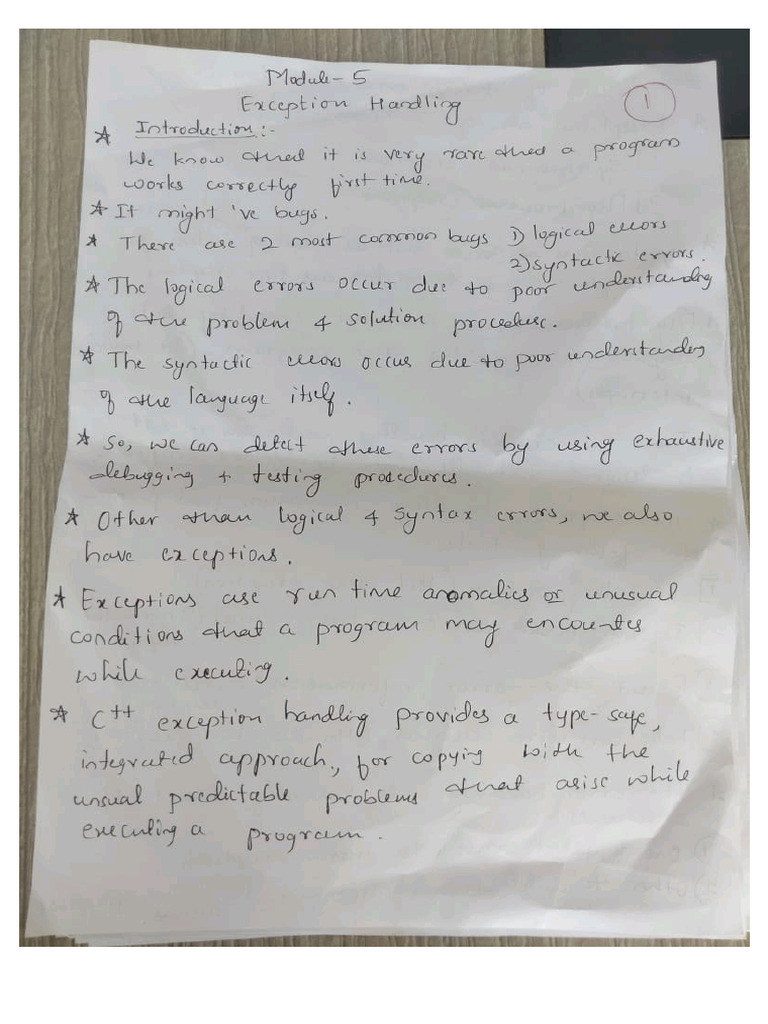 Module-5
Exception Handling
1
* Introduction:-
We know that it is very rare that a program
works correctly first time.
* It might 've bugs.
* There are 2 most common bugs 1) logical errors
2) syntactic errors.
* The logical errors occur due to poor understanding
of the problem & solution procedure.
* The syntactic errors occur due to poor understanding
of the language itself.
* So, we can detect these errors by using exhaustive
debugging + testing procedures.
* Other than logical & syntax errors, we also
have exceptions.
* Exceptions are run time anomalies or unusual
conditions that a program may encounter
while executing.
* C++ exception handling provides a type-safe,
integrated approach, for copying with the
unsual predictable problems that arise while
executing a program.